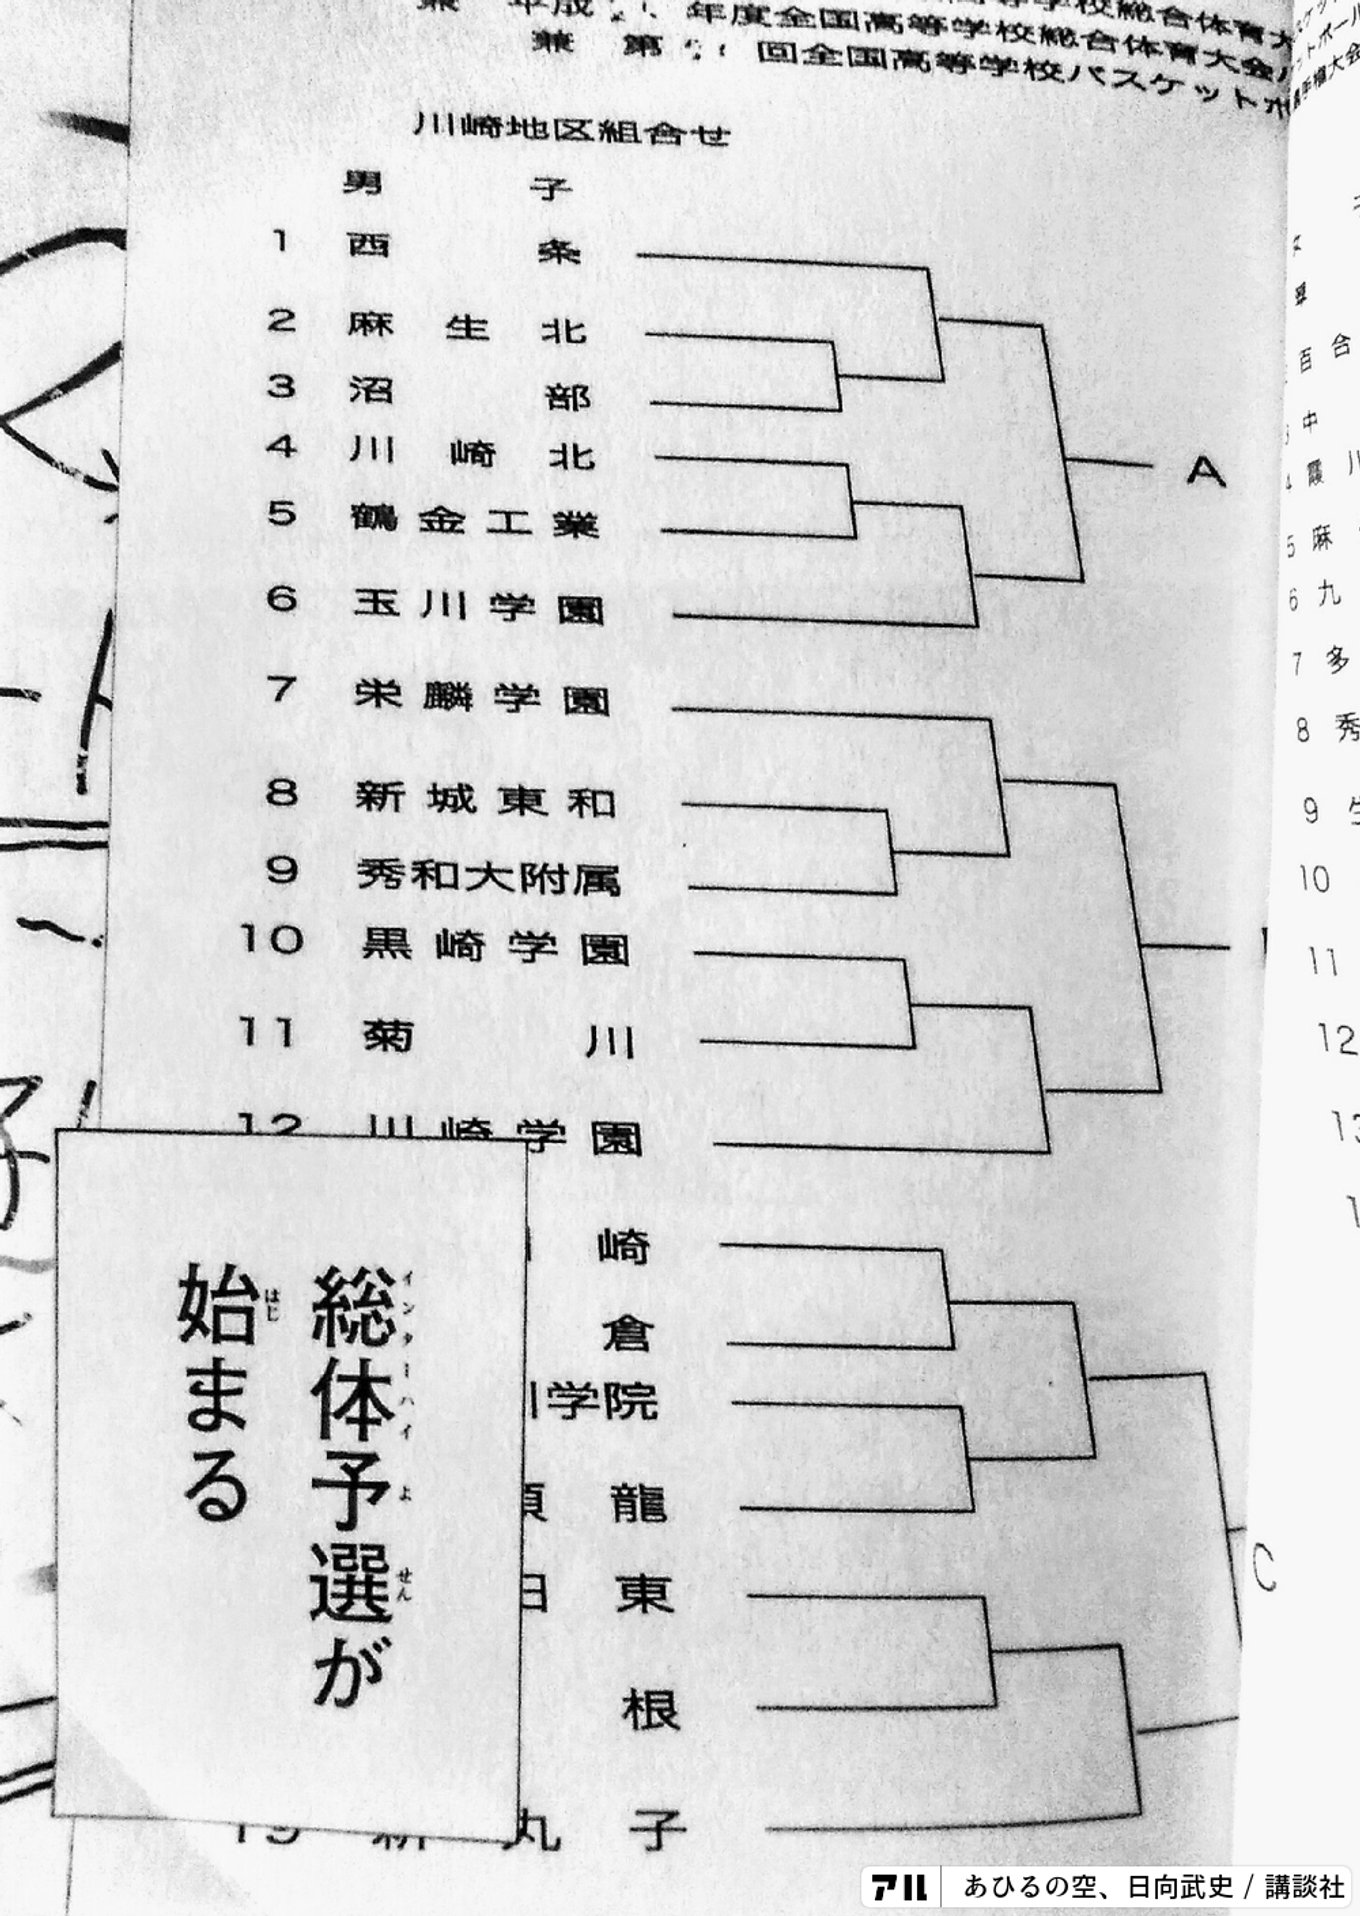 年度全国高等学校総合体育大会
兼 第 回全国高等学校バスケットボ
川崎地区組合せ
男 子
1 西 条
2 麻 生 北
3 沼 部
4 川 崎 北
5 鶴 金 工 業
6 玉 川 学 園
7 栄 麟 学 園
8 新 城 東 和
9 秀和大附属
10 黒 崎 学 園
11 菊 川
12 川 崎 学 園
崎
倉
川学院
須 龍
田 東
根
19 新 丸 子
A
C
百 合
中
4 霞 川
5 麻
6 九
7 多
8 秀
9 生
10
11
12
13
総体予選が
インターハイ よ せん
始まる
はじ
アル あひるの空、日向武史 / 講談社